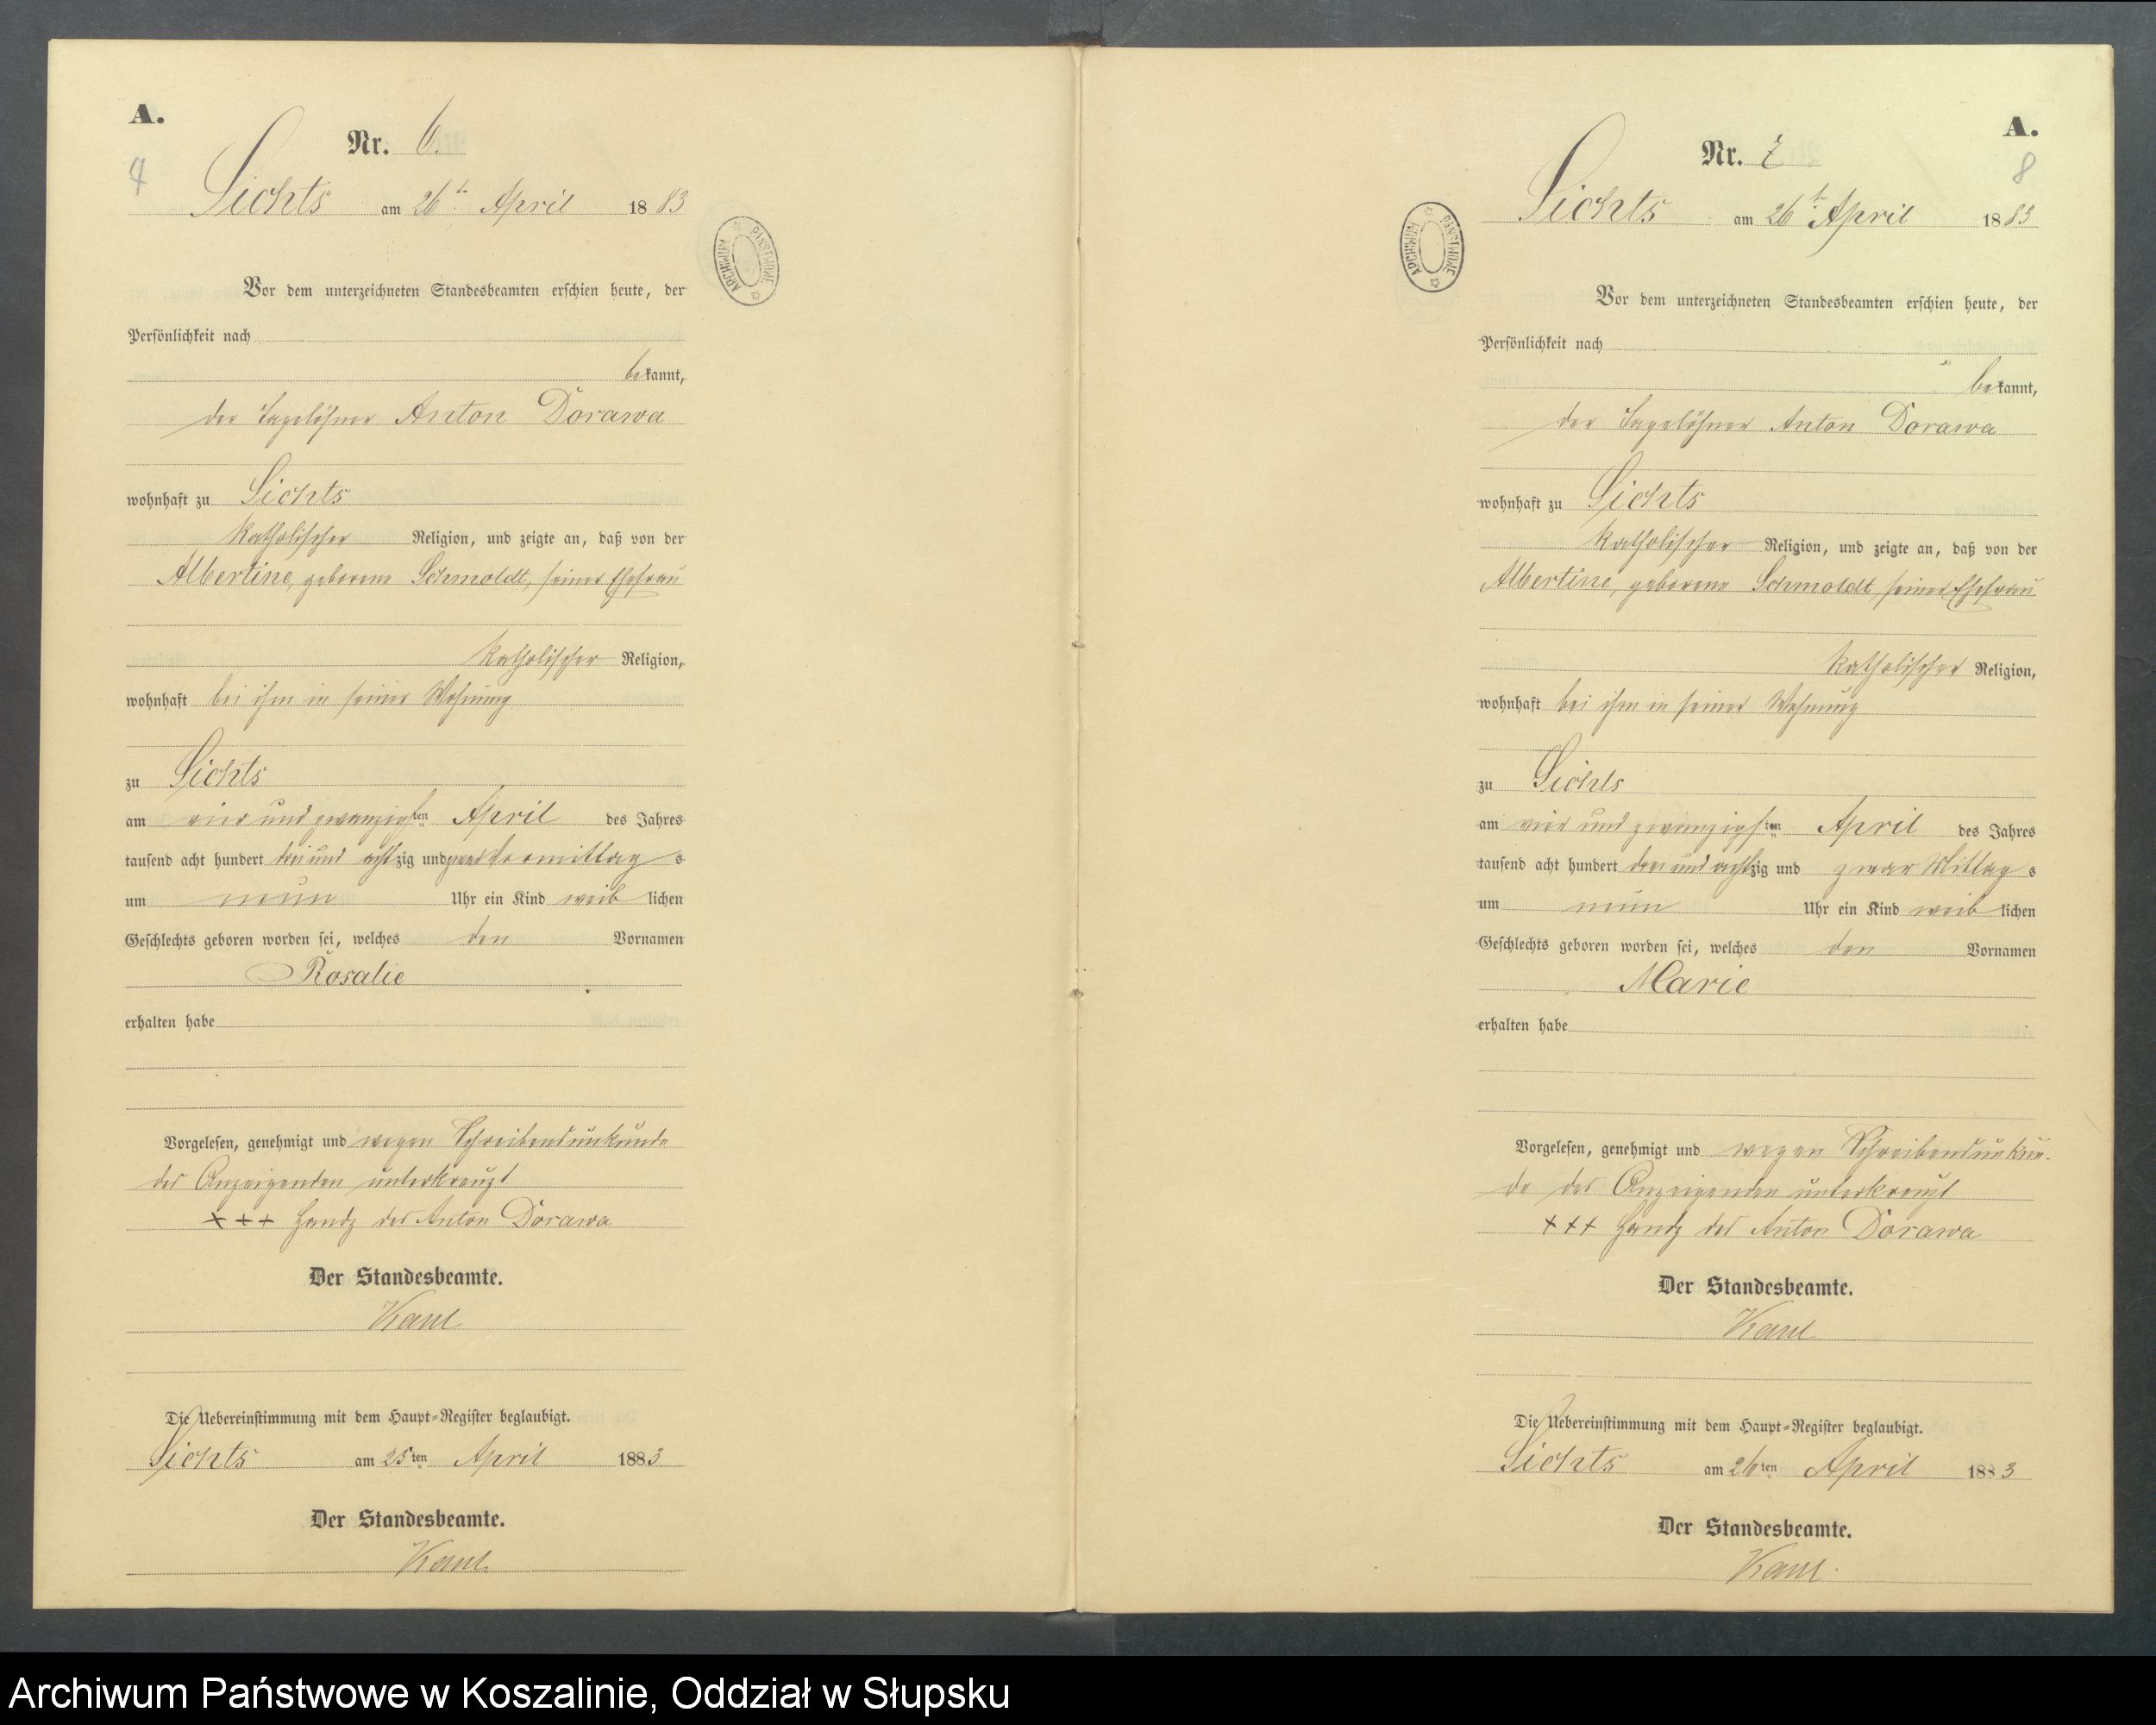 A.
Nr. 6.
7
Sichts am 26t. April 1883
ARCHIWUM PAŃSTWOWE
Vor dem unterzeichneten Standesbeamten erschien heute, der
Persönlichkeit nach
bekannt,
der Tagelöhner Anton Dorawa
wohnhaft zu Sichts
katholischer Religion, und zeigte an, daß von der
Albertine, geborene Schmoldt, seiner Ehefrau
katholischer Religion,
wohnhaft bei ihm in seiner Wohnung
zu Sichts
am vier und zwanzigsten April des Jahres
tausend acht hundert drei und achtzig und zwar Vormittags
um neun Uhr ein Kind weiblichen
Geschlechts geboren worden sei, welches den Vornamen
Rosalie
erhalten habe
Vorgelesen, genehmigt und wegen Schreibensunkunde
des Anzeigenden unterkreuzt
+++ Handz des Anton Dorawa
Der Standesbeamte.
Kaul
Die Uebereinstimmung mit dem Haupt-Register beglaubigt.
Sichts am 25ten April 1883
Der Standesbeamte.
Kaul.
A.
Nr. 7
8
Sichts am 26t. April 1883
ARCHIWUM PAŃSTWOWE
Vor dem unterzeichneten Standesbeamten erschien heute, der
Persönlichkeit nach
bekannt,
der Tagelöhner Anton Dorawa
wohnhaft zu Sichts
katholischer Religion, und zeigte an, daß von der
Albertine, geborene Schmoldt, seiner Ehefrau
katholischer Religion,
wohnhaft bei ihm in seiner Wohnung
zu Sichts
am vier und zwanzigsten April des Jahres
tausend acht hundert drei und achtzig und zwar Mittags
um neun Uhr ein Kind weiblichen
Geschlechts geboren worden sei, welches den Vornamen
Marie
erhalten habe
Vorgelesen, genehmigt und wegen Schreibensunkun-
de des Anzeigenden unterkreuzt
+++ Handz des Anton Dorawa
Der Standesbeamte.
Kaul
Die Uebereinstimmung mit dem Haupt-Register beglaubigt.
Sichts am 26ten April 1883
Der Standesbeamte.
Kaul.
Archiwum Państwowe w Koszalinie, Oddział w Słupsku